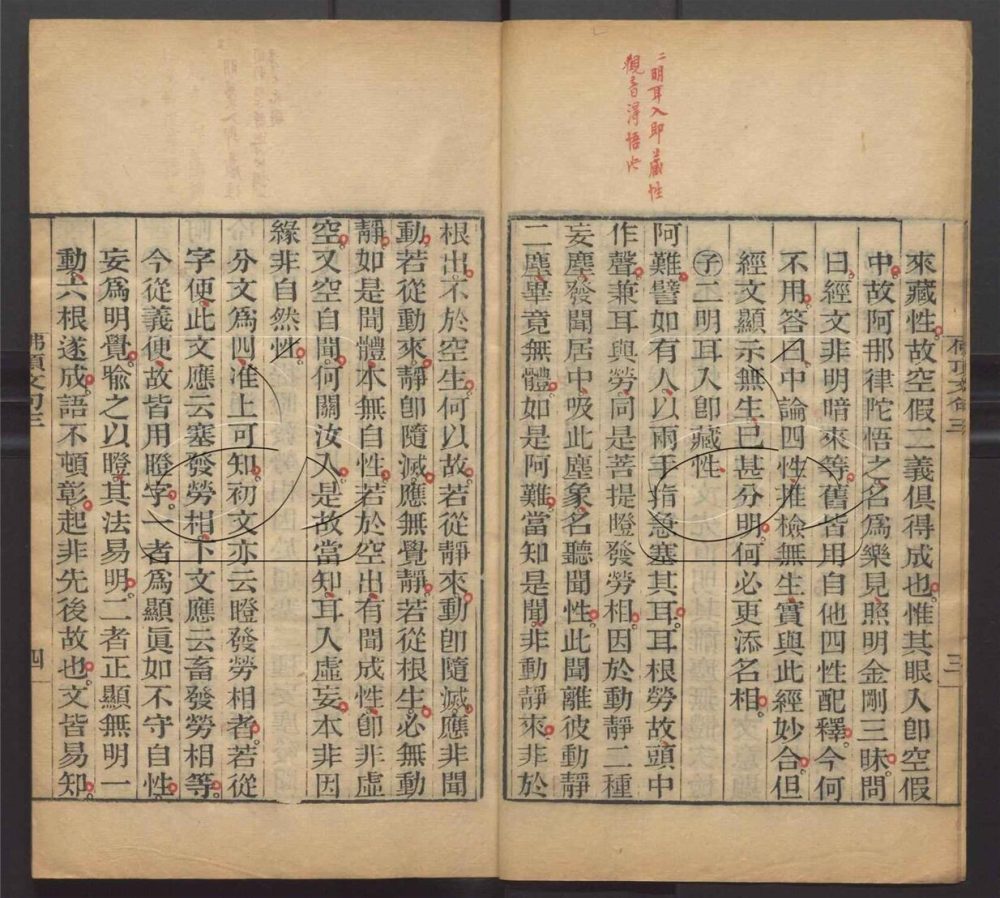 二明耳入即藏性
觀音得悟處
來藏性故空假二義俱得成也惟其眼入卽空假
中故阿那律陀悟之名爲樂見照明金剛三昧問
曰經文非明暗來等舊皆用自他四性配釋今何
不用答曰中論四性推檢無生實與此經妙合但
經文顯示無生已甚分明何必更添名相
㊀二明耳入卽藏性
阿難譬如有人以兩手指急塞其耳耳根勞故頭中
作聲兼耳與勞同是菩提瞪發勞相因於動靜二種
妄塵發聞居中吸此塵象名聽聞性此聞離彼動靜
二塵畢竟無體如是阿難當知是聞非動靜來非於
三
根出不於空生何以故若從靜來動卽隨滅應非聞
動若從動來靜卽隨滅應無覺靜若從根生必無動
靜如是聞體本無自性若於空出有聞成性卽非虛
空又空自聞何關汝入是故當知耳入虛妄本非因
緣非自然性
分文爲四准上可知初文亦云瞪發勞相者若從
字便此文應云塞發勞相下文應云畜發勞相等
今從義便故皆用瞪字一者爲顯眞如不守自性
妄爲明覺喩之以瞪其法易明二者正顯無明一
動六根遂成語不頓彰起非先後故也文皆易知
頂文句三
四